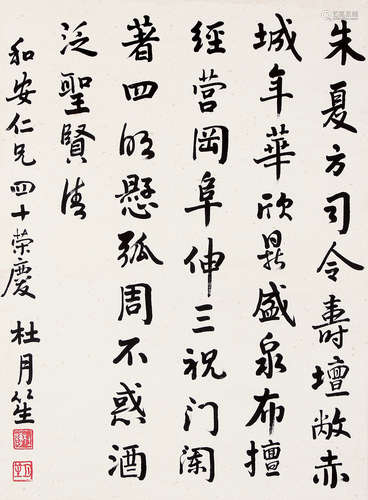 朱夏方司令壽壇敞赤
城年華欣鼎盛泉布擅
經营岡阜伸三祝门阑
著四明懸弧周不惑酒
泛聖賢清
和安仁兄四十荣慶
杜月笙